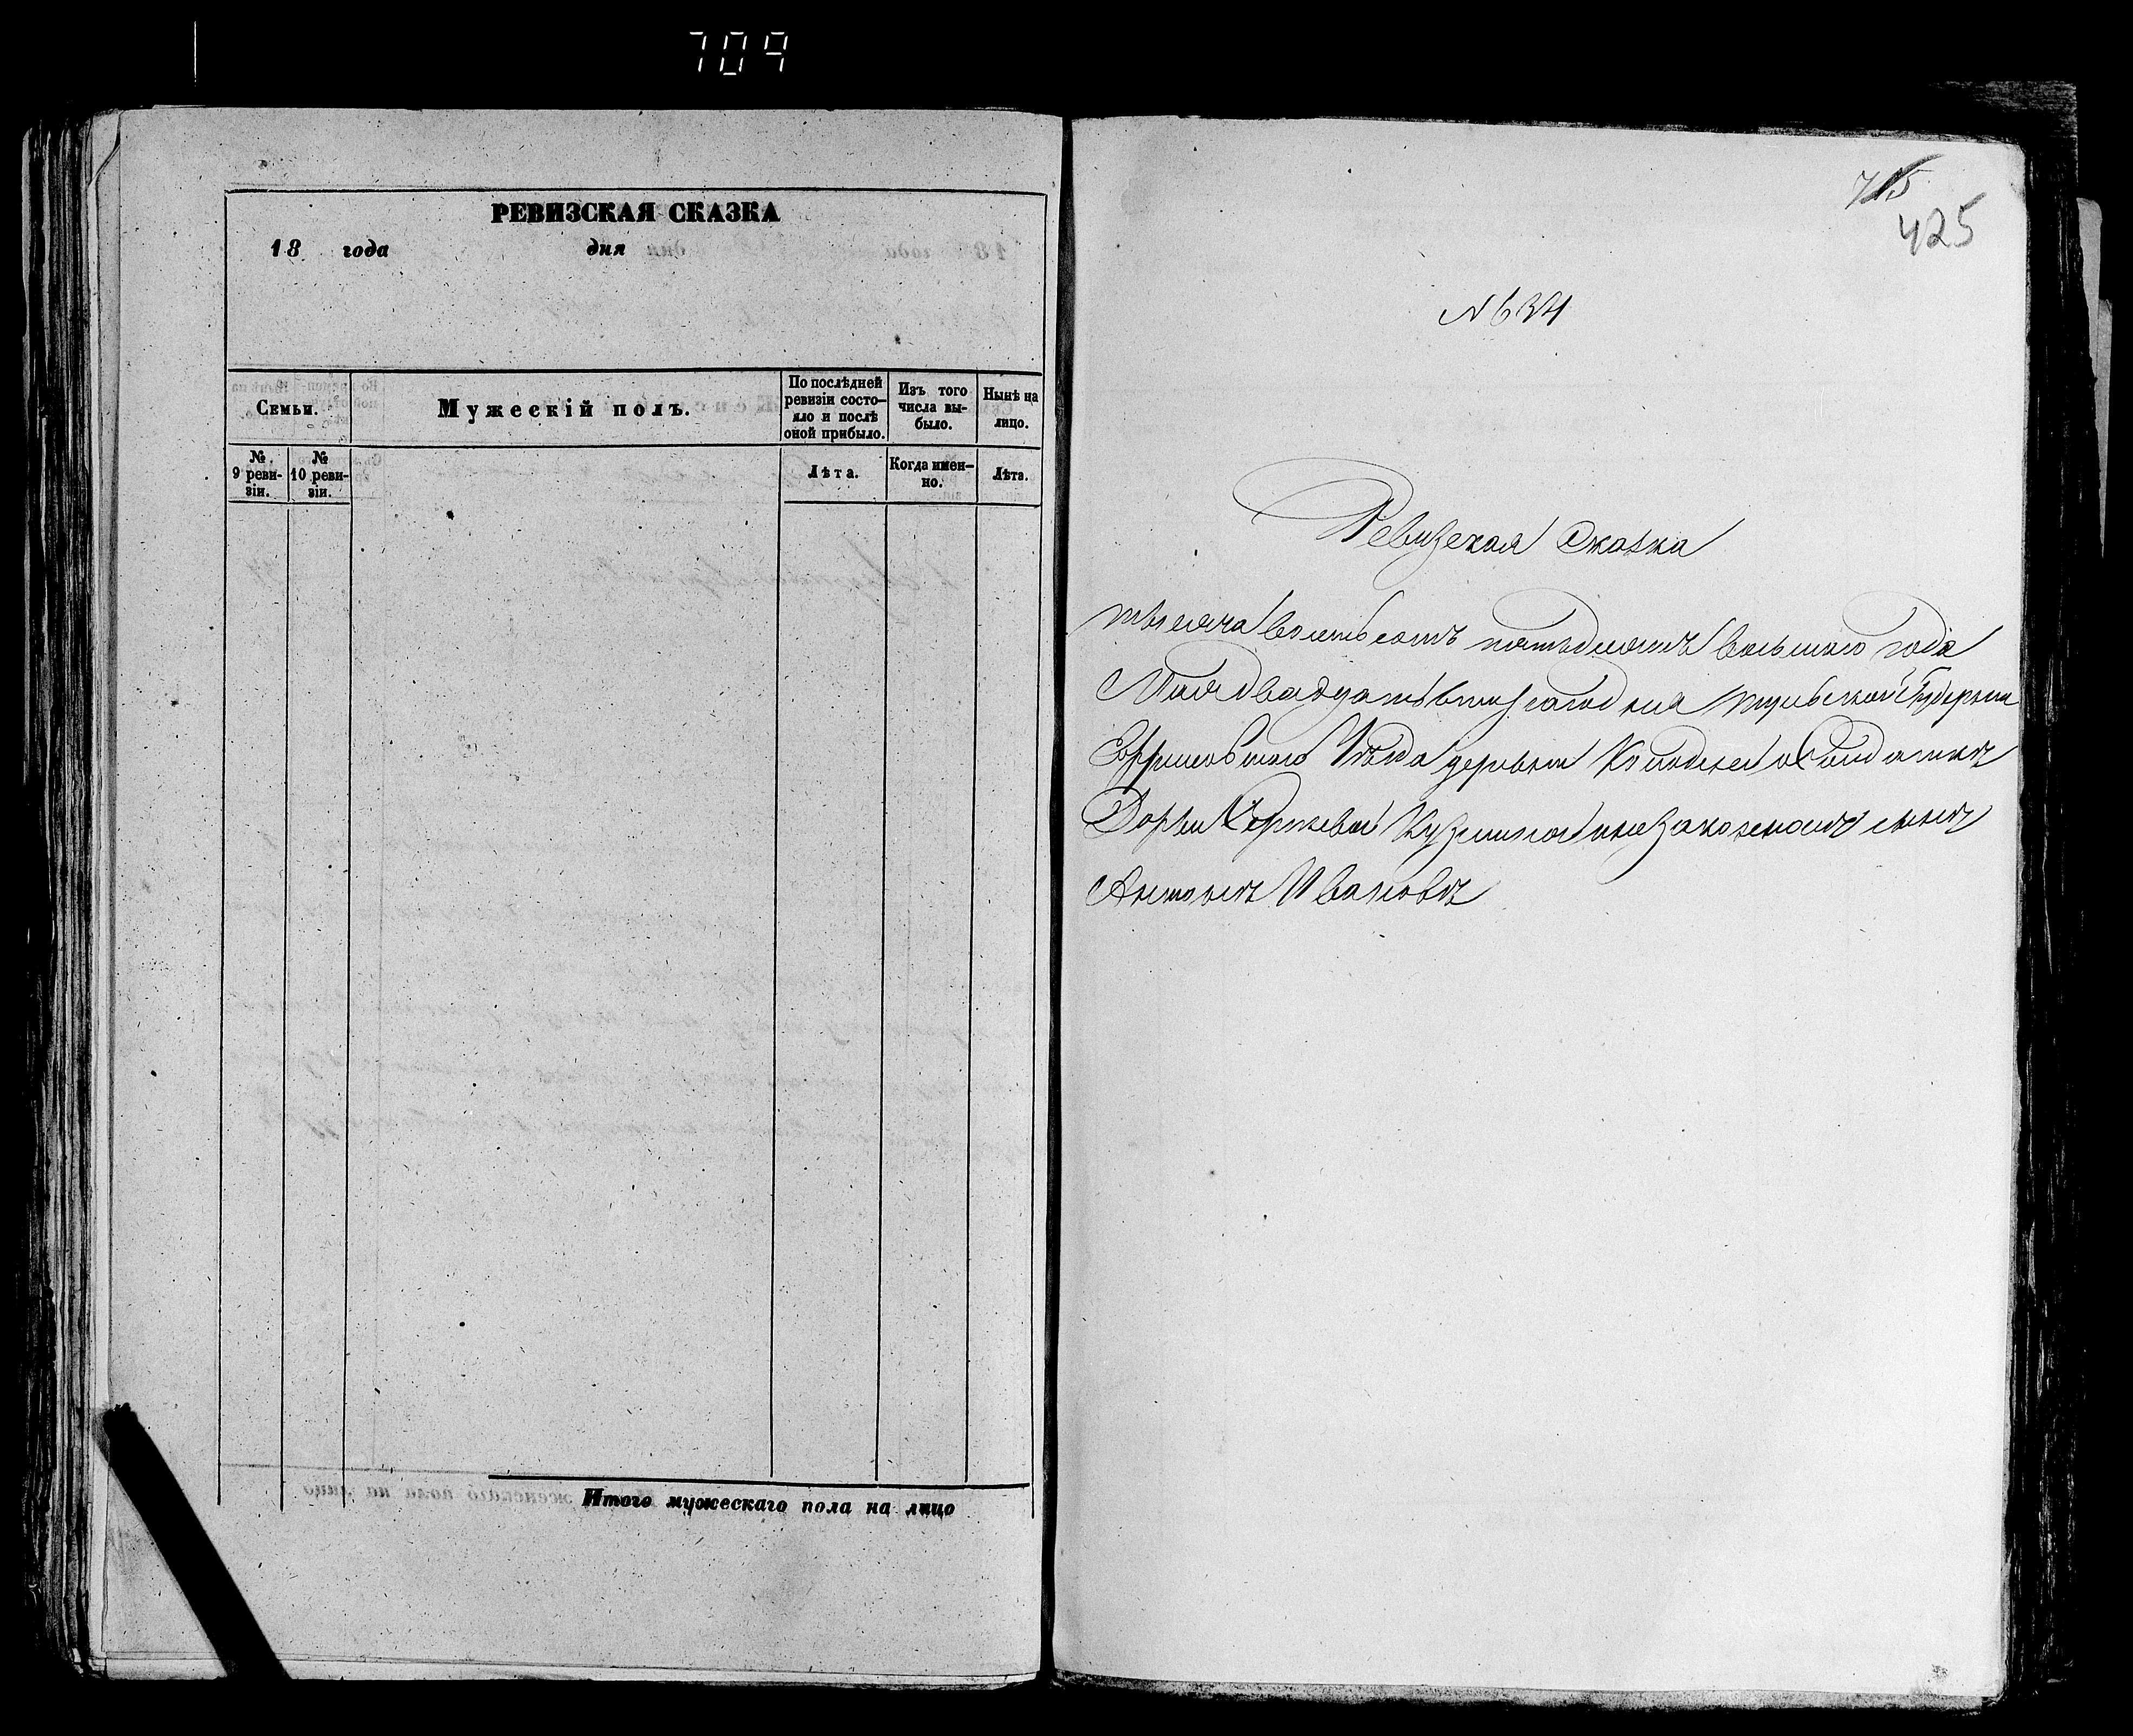 709
РЕВИЗСКАЯ СКАЗКА
18 года дня
Семьи.
Мужескій полъ.
По послѣдней ревизіи состо-
яло и послѣ
оной прибыло.
Изъ того
числа вы-
было.
Нынѣ на
лицо.
№
9 реви-
зіи.
№
10 реви-
зіи.
Лѣта.
Когда имен-
но.
Лѣта.
Итого мужескаго пола на лицо
715
425
N 634
Ревизская Сказка
тысяча восемьсотъ пятьдесятъ восьмаго года
Мая двадцать дня тульской Губерніи
Ефремовскаго Уѣзда деревни Солдатки
Дарьи Сергѣевой сынъ
Антонъ Ивановъ